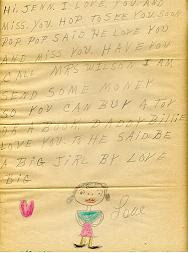 HI, JENN. I LOVE YOU AND
MISS YOU. HOP TO SEE YOU SOON
POP POP SAID HE LOVE YOU
AND MISS YOU. HAVE YOU
CALL MRS WILSON. I AM
SEND SOME MONEY
SO YOU CAN BUY A TOY
OR A BOOK. DADDY Billie
LOVE YOU TO HE SAID BE
A BIG JIRL BY LOVE
BIG
Love